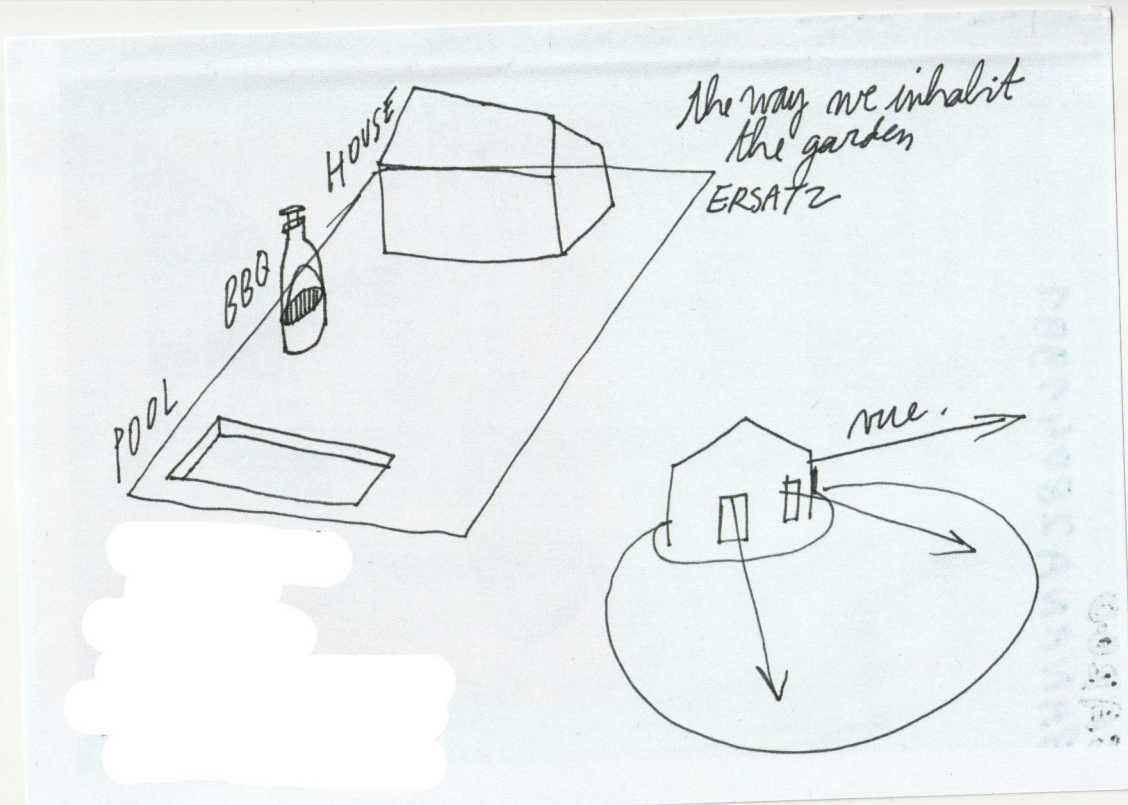 the way we inhabit
the garden
ERSATZ
HOUSE
BBQ
POOL
vue.